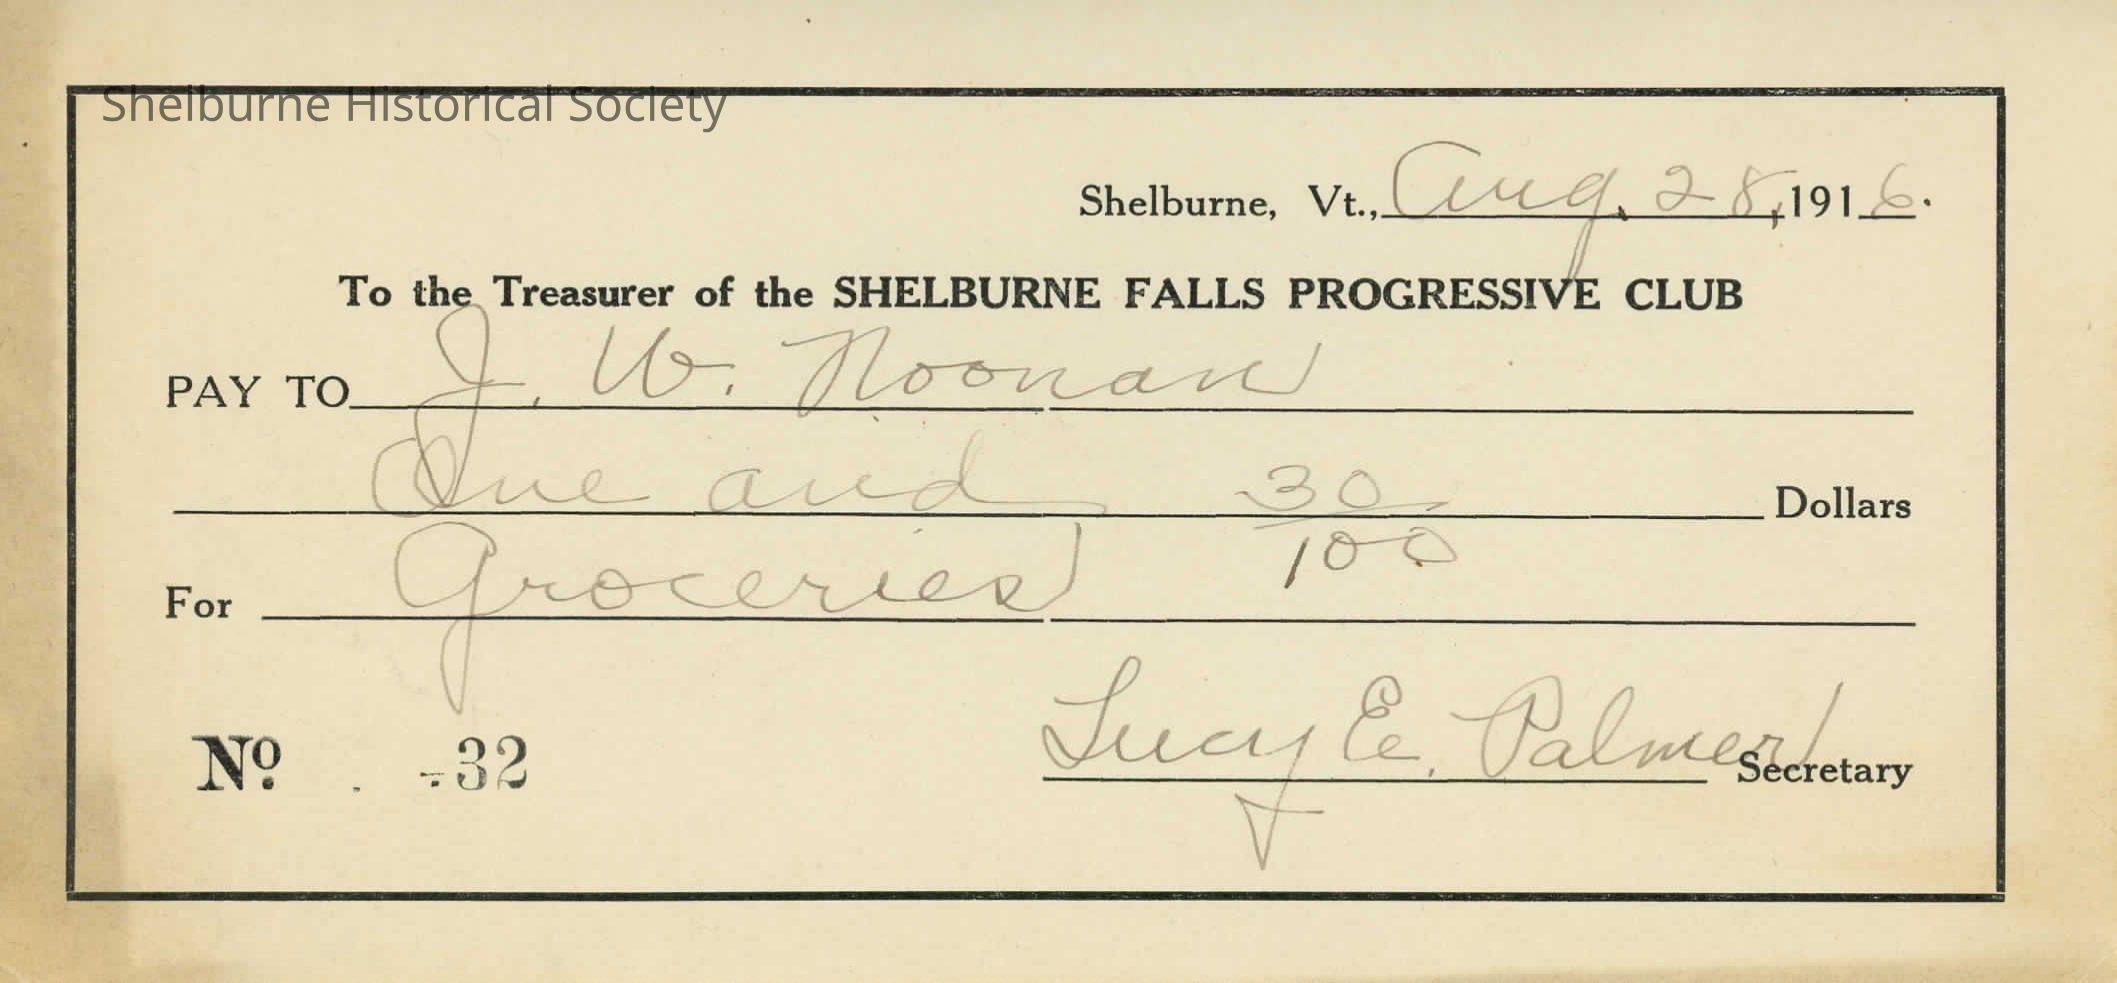 Shelburne Historical Society
Shelburne, Vt., Aug. 28, 1916.
To the Treasurer of the SHELBURNE FALLS PROGRESSIVE CLUB
PAY TO J. W. Noonan
One and 30/100 Dollars
For Groceries
No. 32
Lucy E. Palmer Secretary